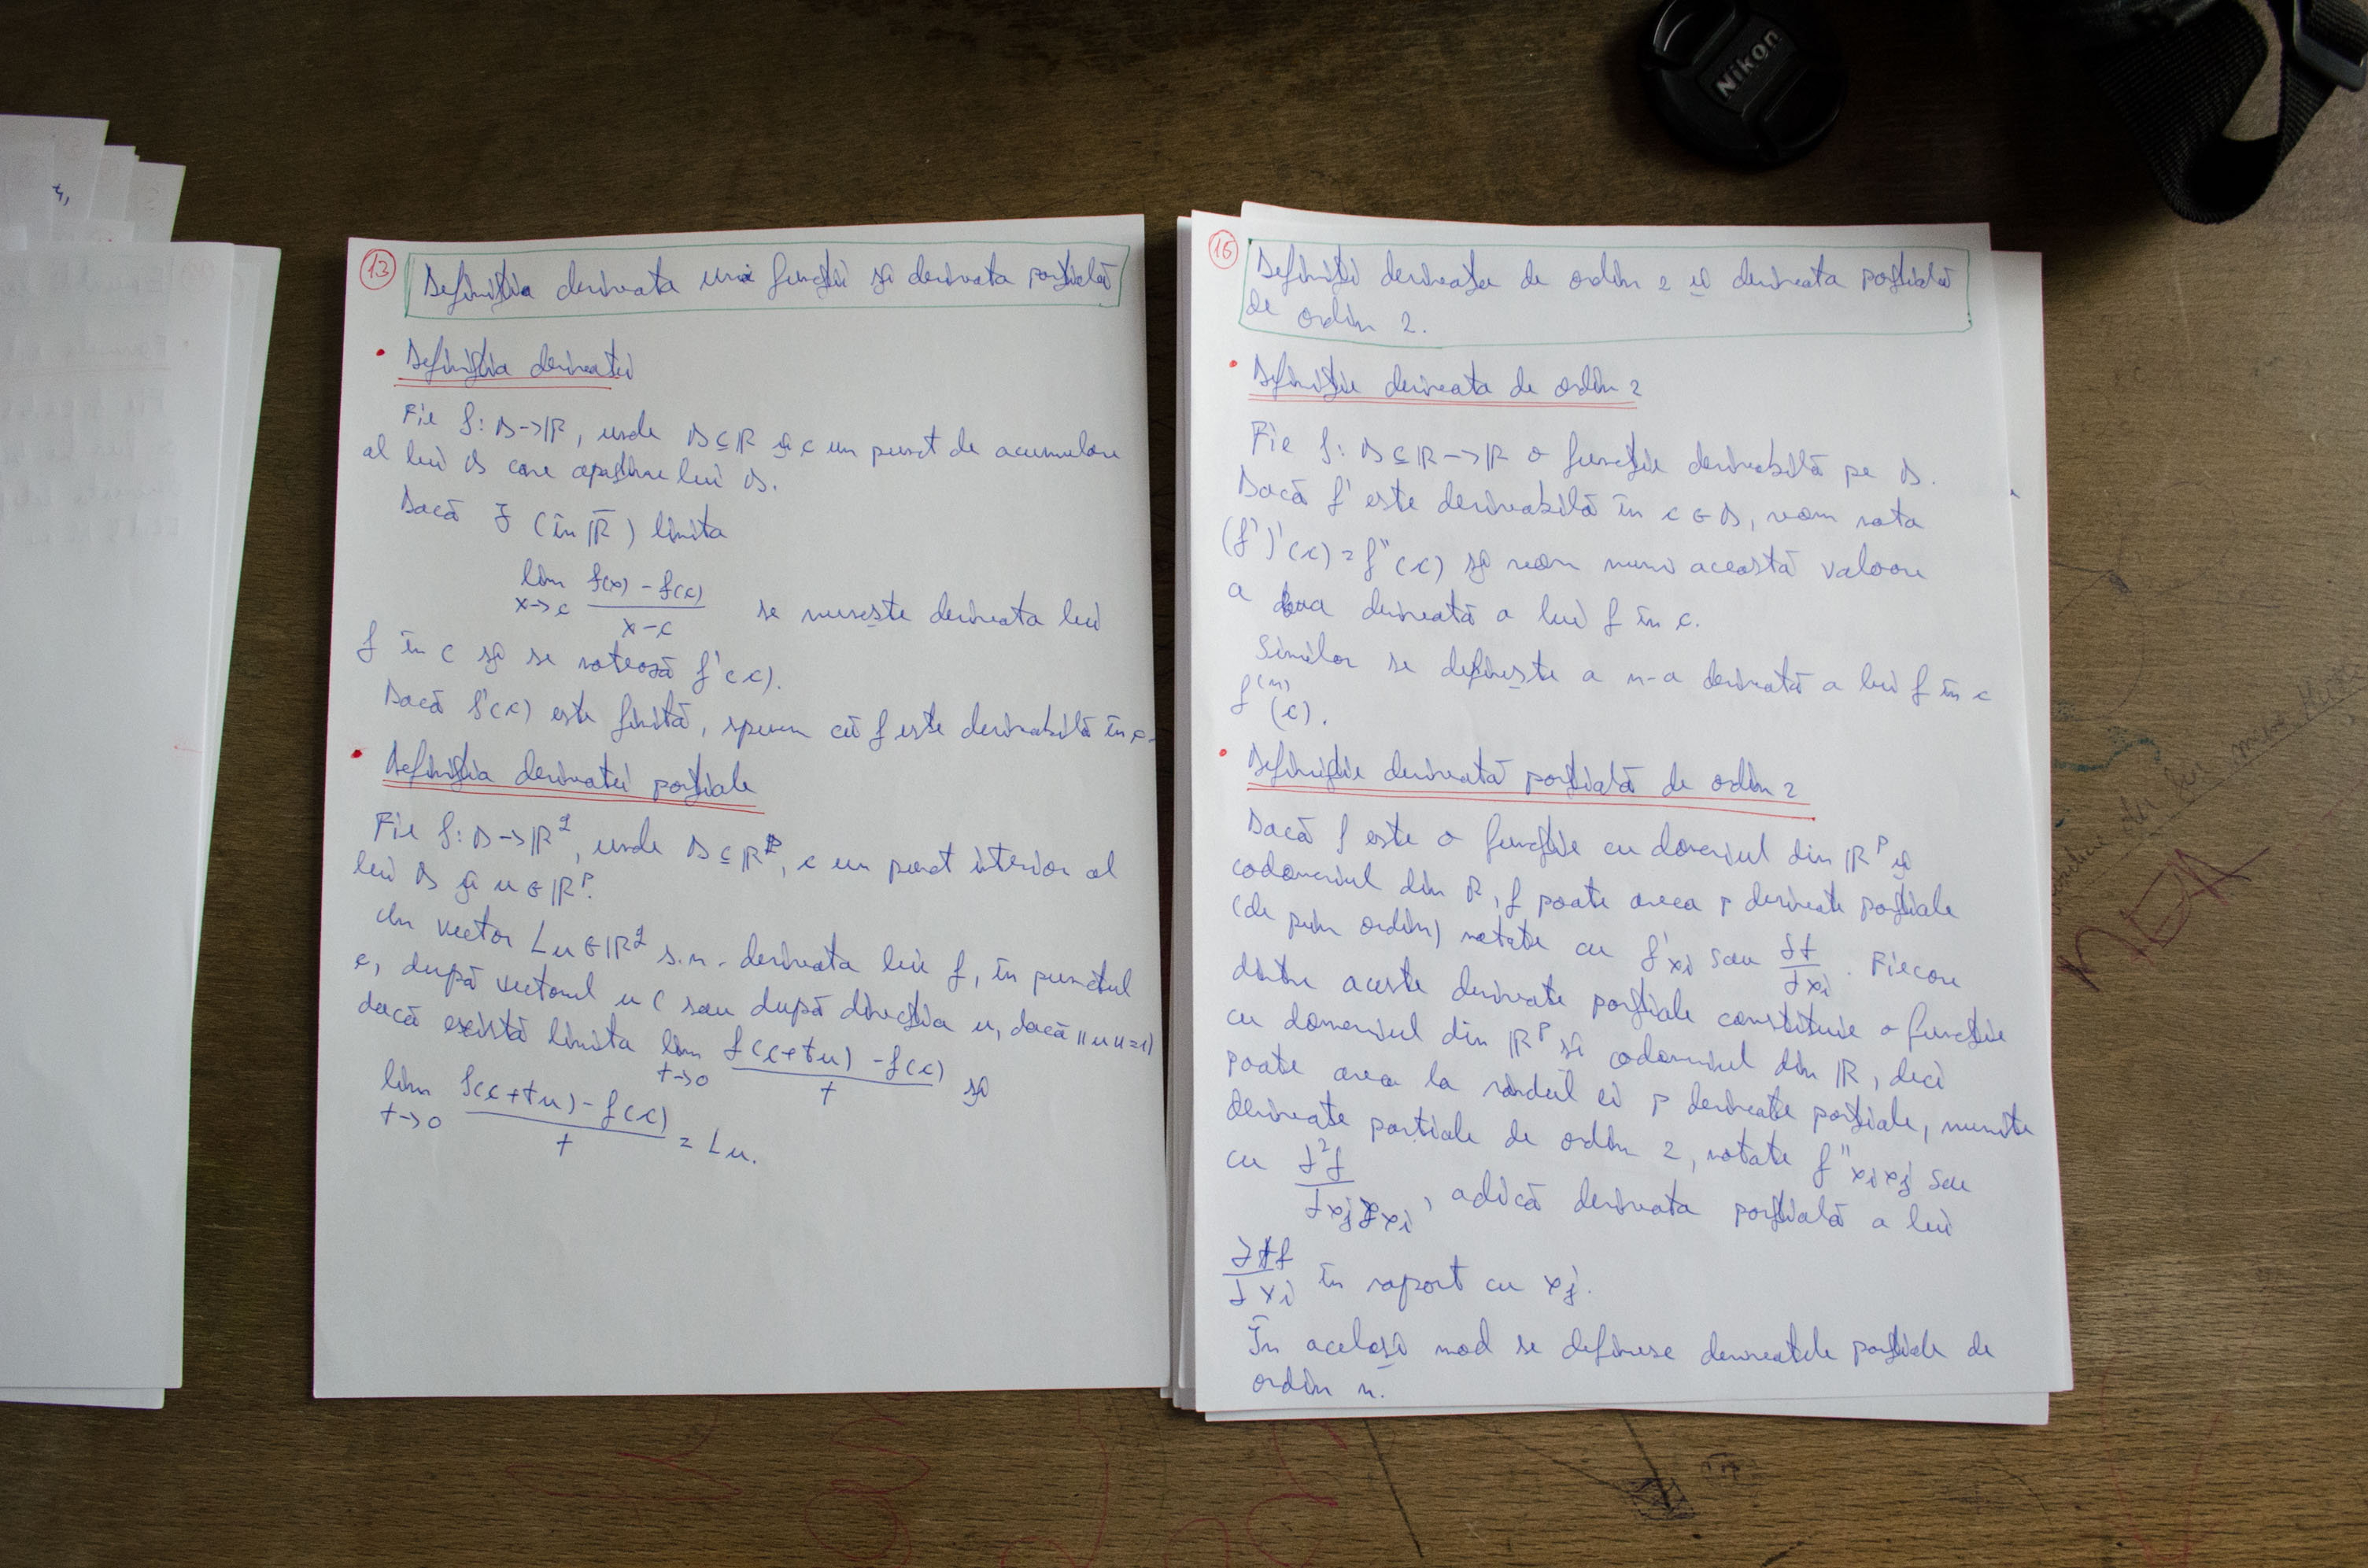 13 Definiția derivata unei funcții și derivata parțială
• Definiția derivatei
Fie f: D→ℝ, unde D⊆ℝ și c un punct de acumulare
al lui D care aparține lui D.
Dacă ∃ (în ℝ̅) limita
lim x→c (f(x) - f(c))/(x-c) se numește derivata lui
f în c și se notează f'(c).
Dacă f'(c) este finită, spunem că f este derivabilă în c.
• Definiția derivatei parțiale
Fie f: D→ℝ^q, unde D⊆ℝ^p, c un punct interior al
lui D și u∈ℝ^p.
Un vector Lu∈ℝ^q s.n. derivata lui f, în punctul
c, după vectorul u (sau după direcția u, dacă ||u||=1)
dacă există limita lim t→0 (f(c+tu) - f(c))/t și
lim t→0 (f(c+tu) - f(c))/t = Lu.
16 Definiții derivata de ordin 2 și derivata parțială
de ordin 2.
• Definiție derivata de ordin 2
Fie f: D⊆ℝ→ℝ o funcție derivabilă pe D.
Dacă f' este derivabilă în c∈D, vom nota
(f')'(c) = f''(c) și vom numi această valoare
a doua derivată a lui f în c.
Similar se definește a n-a derivată a lui f în c
f^(n)(c).
• Definiție derivată parțială de ordin 2
Dacă f este o funcție cu domeniul din ℝ^p și
codomeniul din ℝ, f poate avea p derivate parțiale
(de prim ordin) notate cu f'xi sau ∂f/∂xi. Fiecare
dintre aceste derivate parțiale constituie o funcție
cu domeniul din ℝ^p și codomeniul din ℝ, deci
poate avea la rândul ei p derivate parțiale, numite
derivate parțiale de ordin 2, notate f''xixj sau
cu ∂²f/∂xj∂xi, adică derivata parțială a lui
∂f/∂xi în raport cu xj.
În același mod se definesc derivatele parțiale de
ordin n.
Nikon